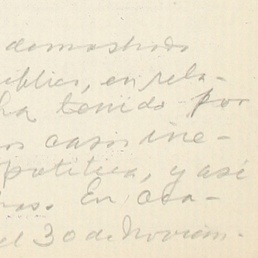 demostrado
ública, en rela-
ha tenido por
os casos ine-
política, y así
as. En oca-
el 30 de Noviem-